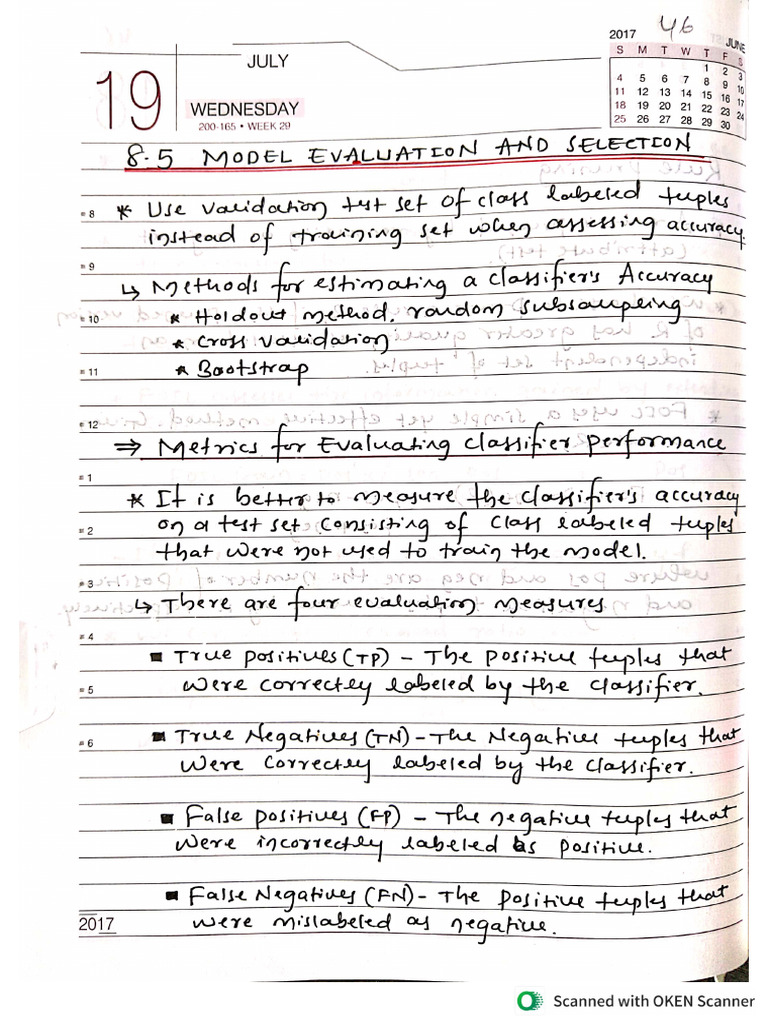 46
2017 JUNE
S M T W T F S
1 2 3
4 5 6 7 8 9 10
11 12 13 14 15 16 17
18 19 20 21 22 23 24
25 26 27 28 29 30
JULY
19
WEDNESDAY
200-165 • WEEK 29
8.5 MODEL EVALUATION AND SELECTION
8 * Use validation test set of class labeled tuples
instead of training set when assessing accuracy.
9
↳ Methods for estimating a classifier's Accuracy
10 * Holdout method, random subsampling
* Cross validation
11 * Bootstrap
12
⇒ Metrics for Evaluating Classifier Performance
1
* It is better to measure the classifier's accuracy
2 on a test set consisting of class labeled tuples
that were not used to train the model.
3
↳ There are four evaluation measures
4
▪ True positives (TP) - The positive tuples that
5 were correctly labeled by the classifier.
6 ▪ True Negatives (TN) - The Negative tuples that
were correctly labeled by the classifier.
▪ False positives (FP) - The negative tuples that
were incorrectly labeled as positive.
▪ False Negatives (FN) - The positive tuples that
2017 were mislabeled as negative.
Scanned with OKEN Scanner